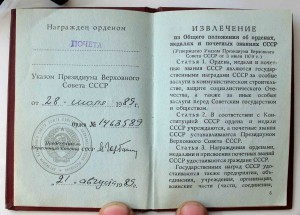 Награжден орденом
ПОЧЕТА
Указом Президиума Верховного
Совета СССР
от 28 июля 1985 г.
Орден № 1463589
21 августа 1985 г.
ИЗВЛЕЧЕНИЕ
из Общего положения об орденах,
медалях и почетных званиях СССР
(Утверждено Указом Президиума Верховного
Совета СССР от 3 июля 1979 г.)
Статья 1. Ордена, медали и почет-
ные звания СССР являются государст-
венными наградами СССР за особые
заслуги в коммунистическом строитель-
стве, защите социалистического Отечества,
а также за иные особые
заслуги перед Советским государством
и обществом.
Статья 2. В соответствии с Конститу-
цией СССР ордена и медали
СССР учреждаются, а почетные звания
СССР устанавливаются Президиумом
Верховного Совета СССР.
Статья 3. Награждения орденами,
медалями и присвоения почетных званий
СССР удостаиваются граждане СССР.
Государственных наград СССР удо-
стаиваются также предприятия, объ-
единения, учреждения, организации,
воинские части